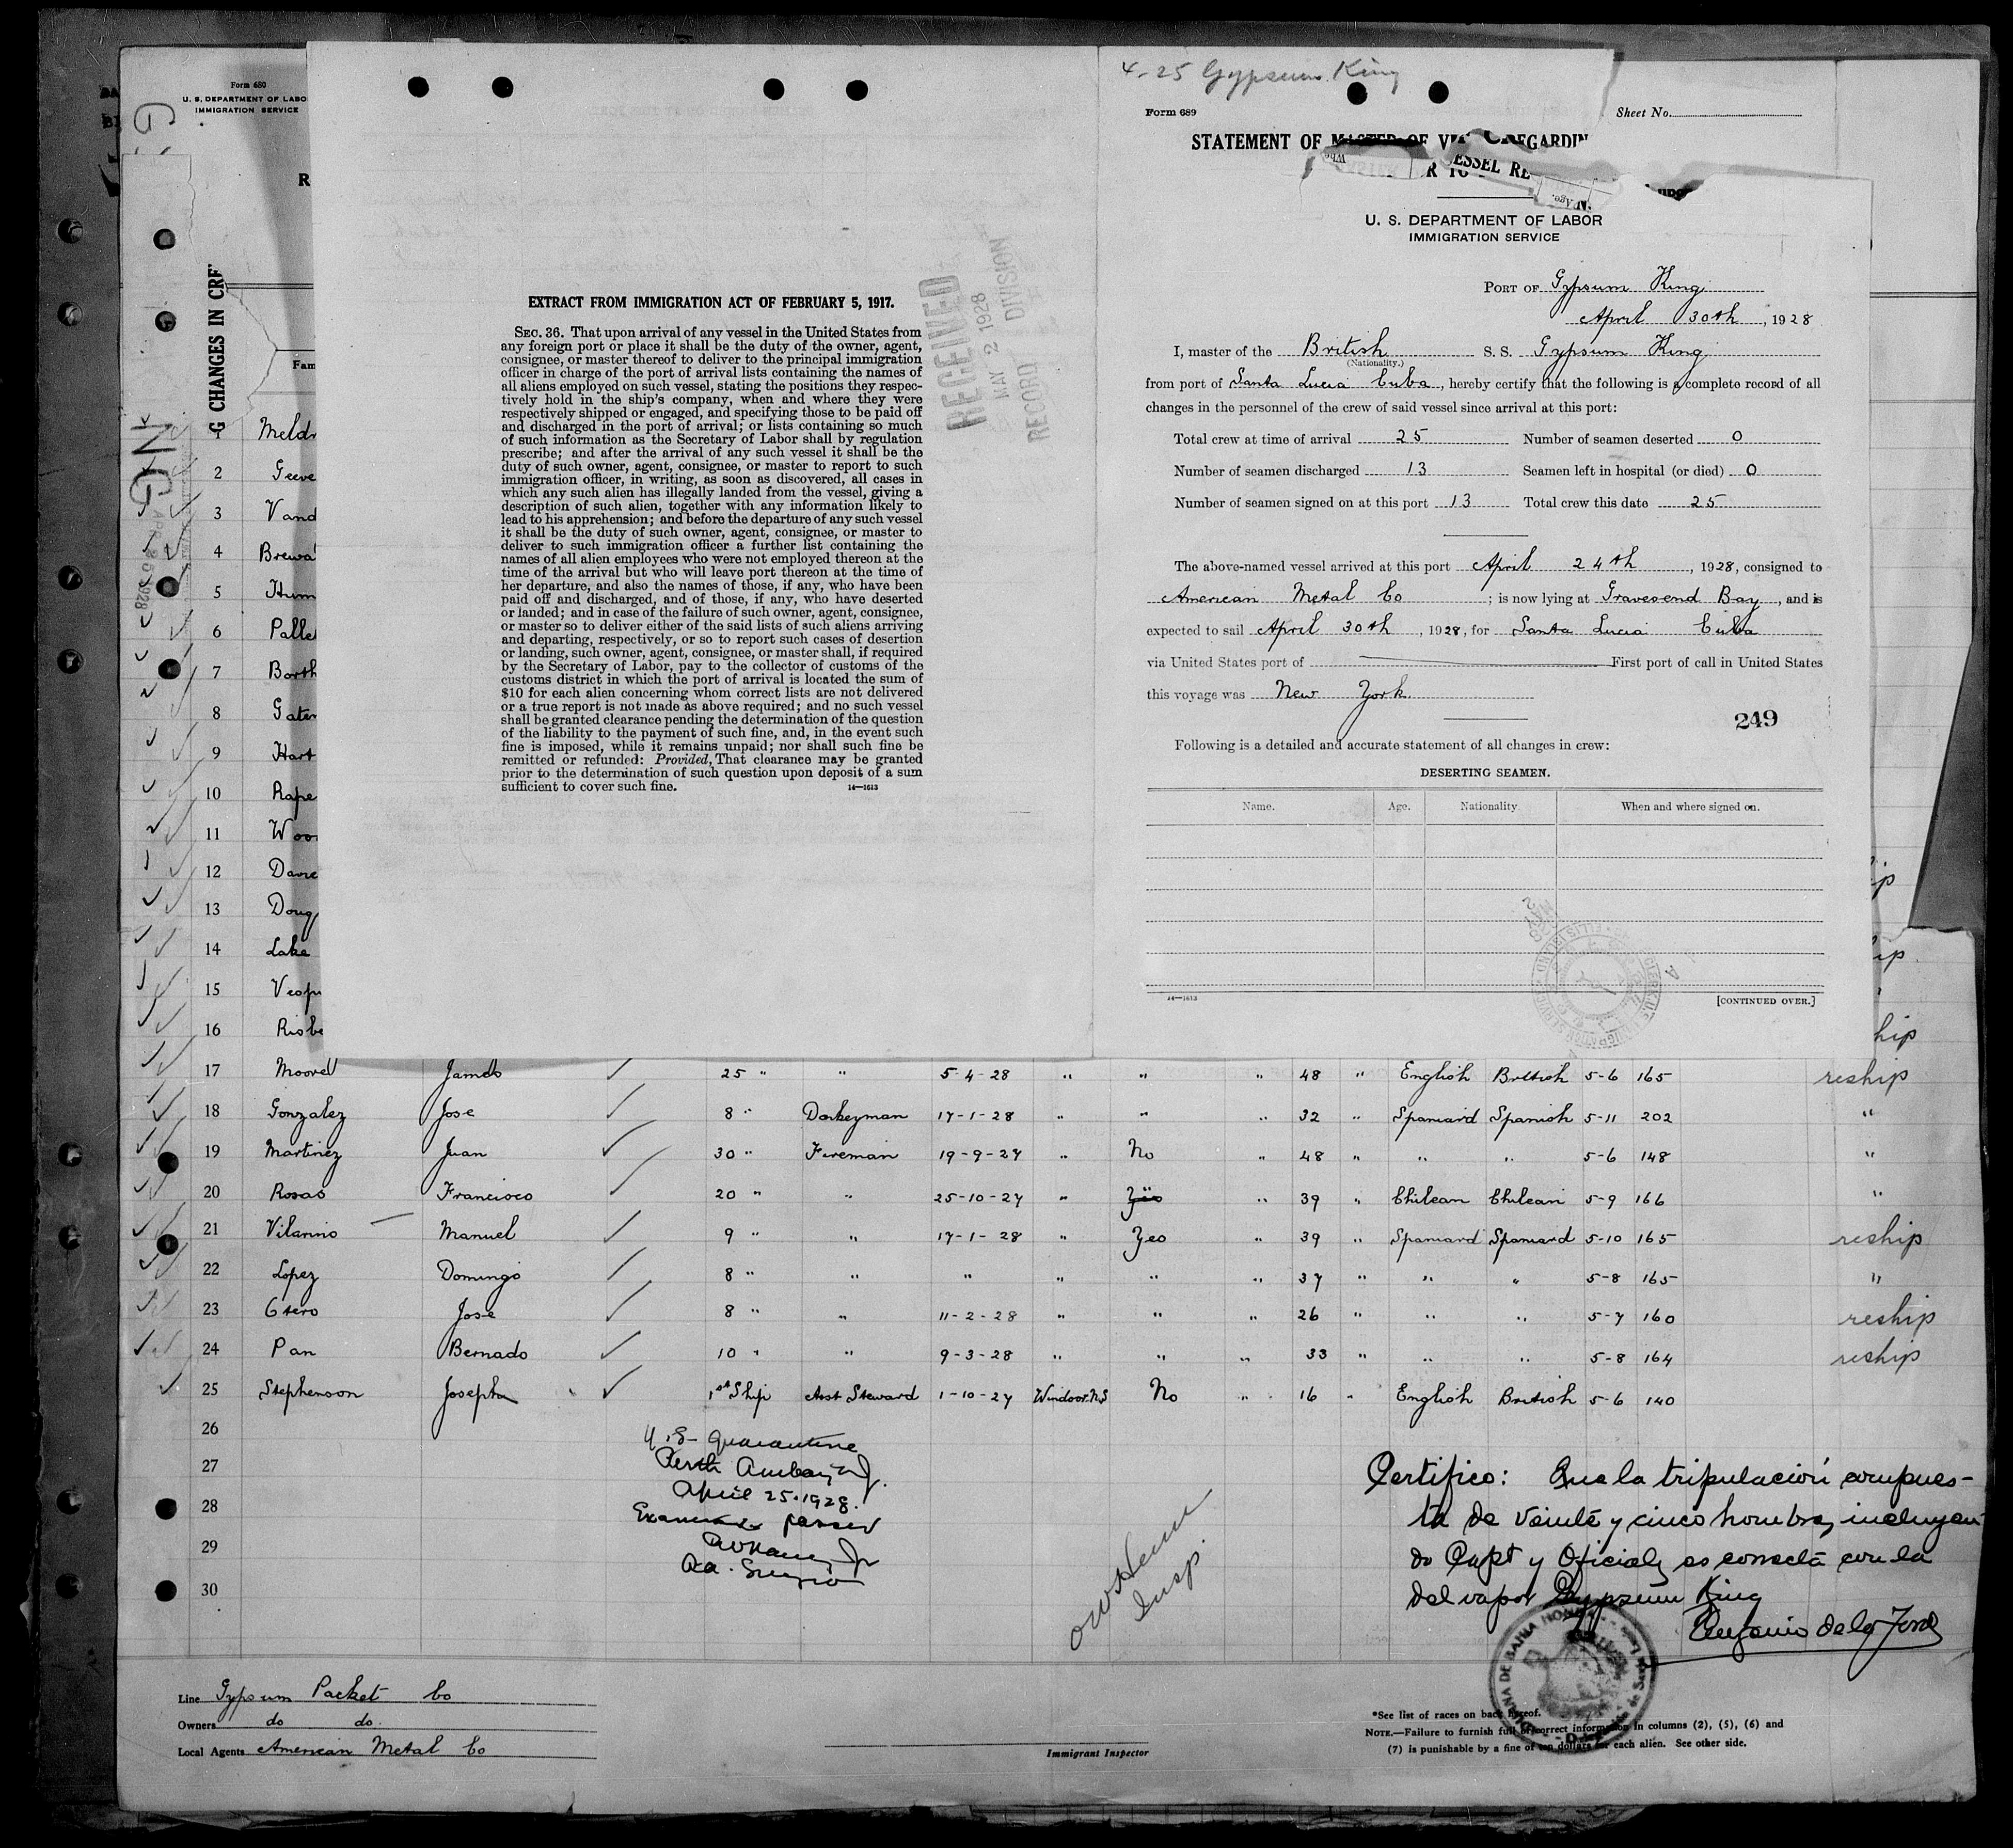 4-25 Gypsum King
Form 689
Sheet No.
STATEMENT OF MASTER OF REGARDIN
VESSEL RE
U. S. DEPARTMENT OF LABOR
IMMIGRATION SERVICE
PORT OF Gypsum King
April 30th, 1928
I, master of the British S. S. Gypsum King
(Nationality.)
from port of Santa Lucia Cuba, hereby certify that the following is a complete record of all
changes in the personnel of the crew of said vessel since arrival at this port:
Total crew at time of arrival 25 Number of seamen deserted 0
Number of seamen discharged 13 Seamen left in hospital (or died) 0
Number of seamen signed on at this port 13 Total crew this date 25
The above-named vessel arrived at this port April 24th, 1928, consigned to
American Metal Co; is now lying at Gravesend Bay, and is
expected to sail April 30th, 1928, for Santa Lucia Cuba
via United States port of First port of call in United States
this voyage was New York
249
Following is a detailed and accurate statement of all changes in crew:
DESERTING SEAMEN.
Name. Age. Nationality When and where signed on.
14—1613
[CONTINUED OVER.]
EXTRACT FROM IMMIGRATION ACT OF FEBRUARY 5, 1917.
SEC. 36. That upon arrival of any vessel in the United States from
any foreign port or place it shall be the duty of the owner, agent,
consignee, or master thereof to deliver to the principal immigration
officer in charge of the port of arrival lists containing the names of
all aliens employed on such vessel, stating the positions they respec-
tively hold in the ship's company, when and where they were
respectively shipped or engaged, and specifying those to be paid off
and discharged in the port of arrival; or lists containing so much
of such information as the Secretary of Labor shall by regulation
prescribe; and after the arrival of any such vessel it shall be the
duty of such owner, agent, consignee, or master to report to such
immigration officer, in writing, as soon as discovered, all cases in
which any such alien has illegally landed from the vessel, giving a
description of such alien, together with any information likely to
lead to his apprehension; and before the departure of any such vessel
it shall be the duty of such owner, agent, consignee, or master to
deliver to such immigration officer a further list containing the
names of all alien employees who were not employed thereon at the
time of the arrival but who will leave port thereon at the time of
her departure, and also the names of those, if any, who have been
paid off and discharged, and of those, if any, who have deserted
or landed; and in case of the failure of such owner, agent, consignee,
or master so to deliver either of the said lists of such aliens arriving
and departing, respectively, or so to report such cases of desertion
or landing, such owner, agent, consignee, or master shall, if required
by the Secretary of Labor, pay to the collector of customs of the
customs district in which the port of arrival is located the sum of
$10 for each alien concerning whom correct lists are not delivered
or a true report is not made as above required; and no such vessel
shall be granted clearance pending the determination of the question
of the liability to the payment of such fine, and, in the event such
fine is imposed, while it remains unpaid; nor shall such fine be
remitted or refunded: Provided, That clearance may be granted
prior to the determination of such question upon deposit of a sum
sufficient to cover such fine.
14—1613
RECEIVED
MAY 2 1928
RECORD DIVISION
Form 680
U. S. DEPARTMENT OF LABO
IMMIGRATION SERVICE
G CHANGES IN CRE
Fam
1 Meldr
2 Geeve
3 Vand
4 Brewa
5 Hum
6 Palle
7 Borth
8 Gater
9 Hart
10 Rape
11 Woo
12 Davie
13 Doug
14 Lake
15 Veop
16 Risbe
17 Moore James 25 " " 5-4-28 " " " 48 " English British 5-6 165 reship
18 Gonzalez Jose 8 " Donkeyman 17-1-28 " " " 32 " Spaniard Spanish 5-11 202 "
19 Martinez Juan 30 " Fireman 19-9-27 " No " 48 " " " 5-6 148 "
20 Rosas Francisco 20 " " 25-10-27 " " 39 " Chilean Chilean 5-9 166 "
21 Vilarino Manuel 9 " " 17-1-28 " Yes " 39 " Spaniard Spaniard 5-10 165 reship
22 Lopez Domingo 8 " " " " " " 37 " " " 5-8 165 "
23 Otero Jose 8 " " 11-2-28 " " " 26 " " " 5-7 160 reship
24 Pan Bernado 10 " " 9-3-28 " " " 33 " " " 5-8 164 reship
25 Stephenson Joseph 1st Ship Asst Steward 1-10-27 Windsor.N.S No " 16 " English British 5-6 140
26
27
28
29
30
U.S. Quarantine
Perth Amboy N.J.
April 25.1928.
Examined passed
Insp.
Certifico: Que la tripulación compues-
ta de veinte y cinco hombres, incluyen
do Capt y Oficiales es correcta con la
del vapor Gypsum King
Line Gypsum Packet Co
Owners do do.
Local Agents American Metal Co
Immigrant Inspector
*See list of races on back hereof.
NOTE.—Failure to furnish full or correct information in columns (2), (5), (6) and
(7) is punishable by a fine of ten dollars for each alien. See other side.